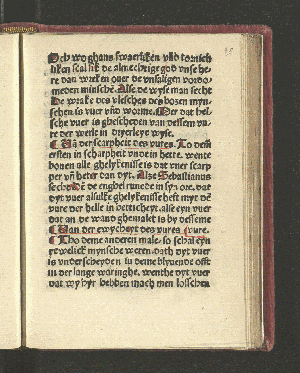 Och wo ghans swaerliken vnd tornich
liken scal sik de almechtige god vnse he
re dan wreken ouer de vnsaligen vordo
meden minsche. Alse de wyse man secht
De wrake des vlesches des bozen myn
schen is vuer vnd worme. Mer dat hel-
sche vuer is ghescheden van dessem vu-
re der werlt in dryerleye wyse.
Van der scarpheit des vures. To dem
ersten in scharpheit vnde in hette. wente
bouen alle ghelykenisse is dat vuer scarp
per vn heter dan dyt. Alze Sebastianus
secht De de enghel runede in syn ore. dat
dyt vuer alsulke ghelykenisse heft myt de
vure der helle in hetticheyt. alse eyn vuer
dat an de wand ghemalet is by desseme
Van der ewycheyt des vures vure.
Tho deme anderen male. so schal eyn
yewelick mynsche weten. dath dyt vuer
is vnderscheyden in deme blyuende offt
in der lange waringhe. wenthe dyt vuer
dat wy hyr hebben mach men losschen